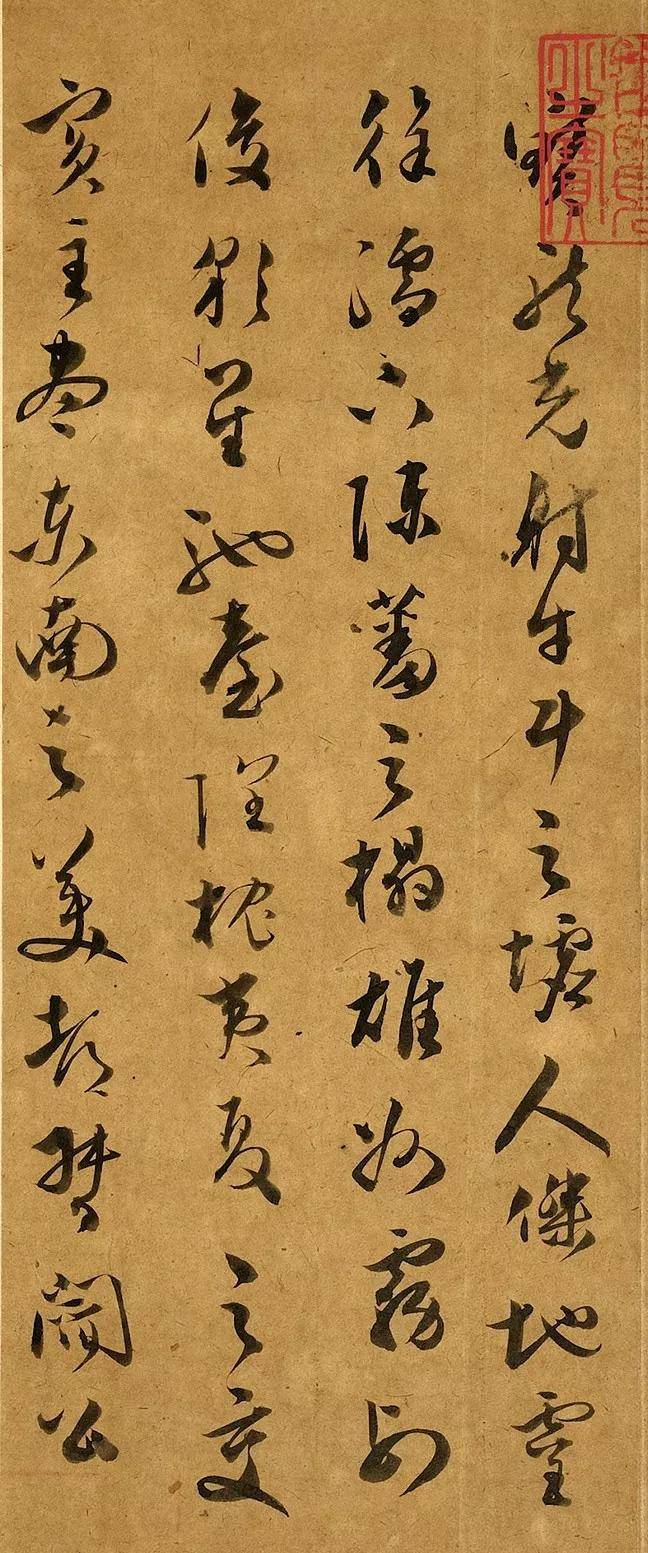 龍光射牛斗之墟人傑地靈
徐孺下陳蕃之榻雄州霧列
俊彩星馳臺隍枕夷夏之交
賓主盡東南之美都督閻公